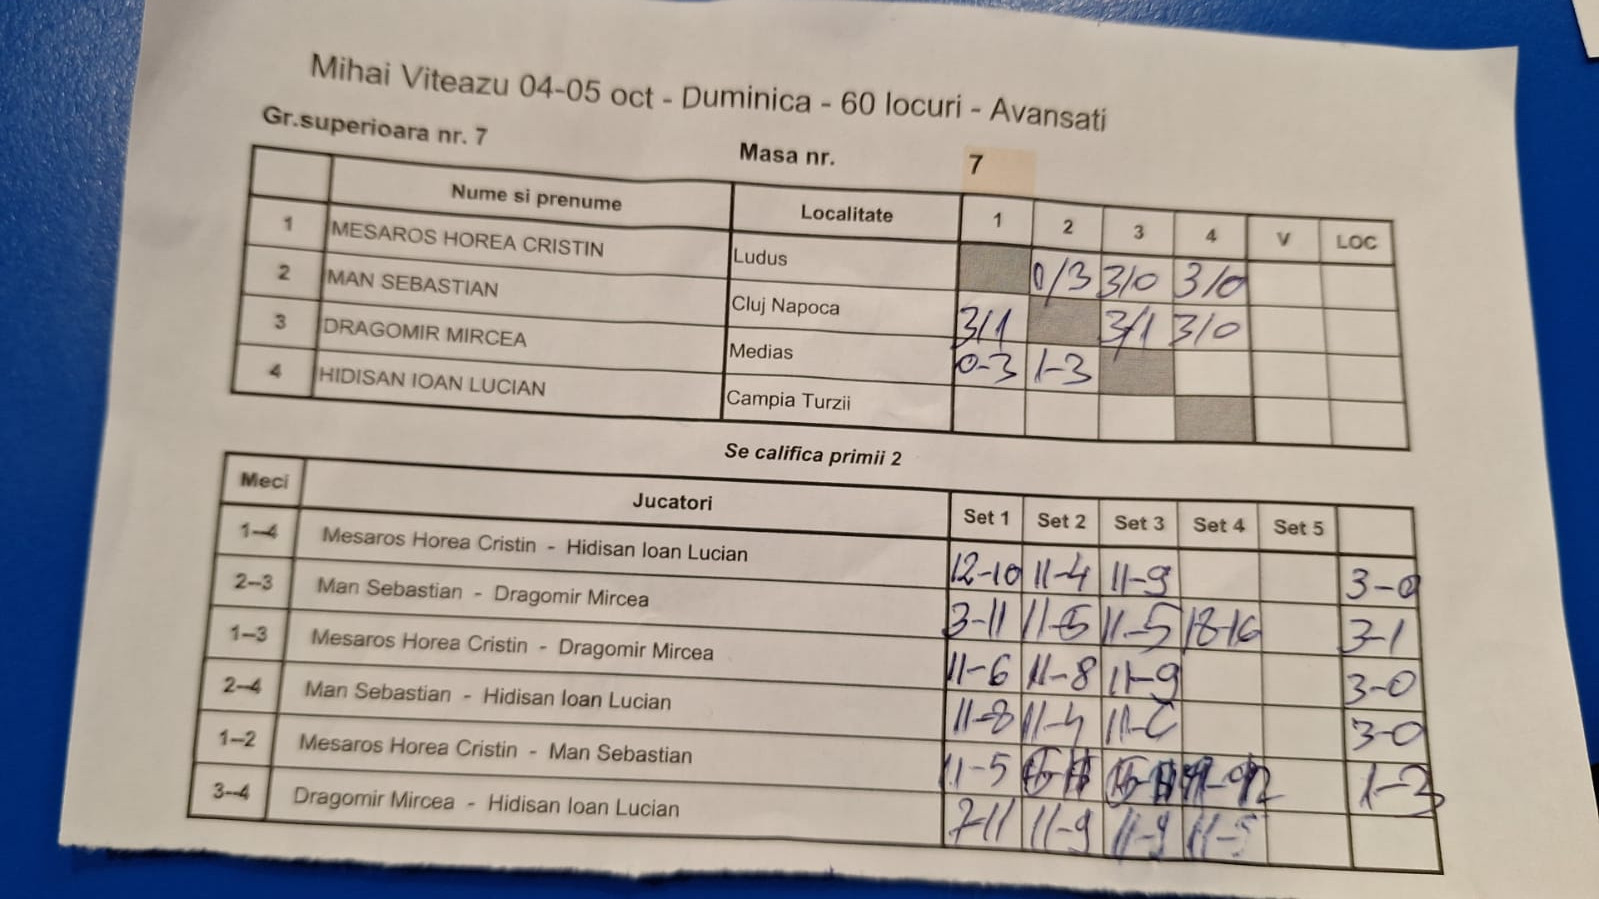 Mihai Viteazu 04-05 oct - Duminica - 60 locuri - Avansati
Gr.superioara nr. 7 Masa nr. 7
Nume si prenume Localitate 1 2 3 4 V LOC
1 MESAROS HOREA CRISTIN Ludus 0/3 3/0 3/0
2 MAN SEBASTIAN Cluj Napoca 3/1 3/1 3/0
3 DRAGOMIR MIRCEA Medias 0-3 1-3
4 HIDISAN IOAN LUCIAN Campia Turzii
Se califica primii 2
Meci Jucatori Set 1 Set 2 Set 3 Set 4 Set 5
1-4 Mesaros Horea Cristin - Hidisan Ioan Lucian 12-10 11-4 11-9 3-0
2-3 Man Sebastian - Dragomir Mircea 3-11 11-6 11-5 18-16 3-1
1-3 Mesaros Horea Cristin - Dragomir Mircea 11-6 11-8 11-9 3-0
2-4 Man Sebastian - Hidisan Ioan Lucian 11-8 11-4 3-0
1-2 Mesaros Horea Cristin - Man Sebastian 11-5 1-3
3-4 Dragomir Mircea - Hidisan Ioan Lucian 7-11 11-9 11-9 11-5